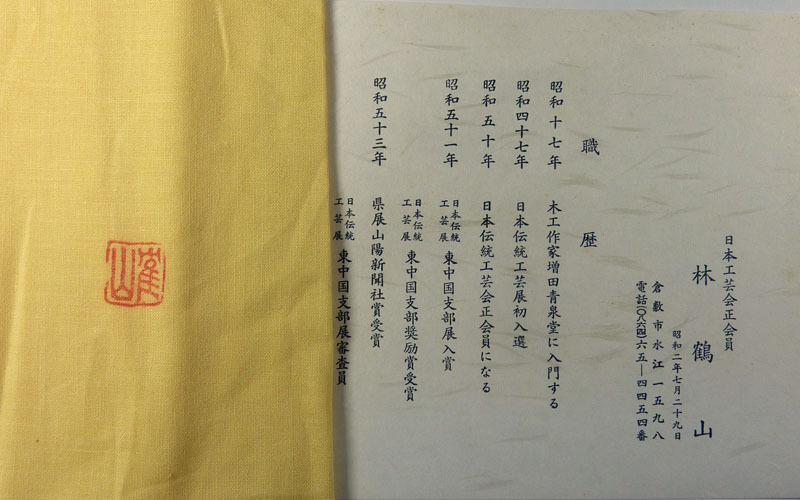 日本工芸会正会員
林鶴山
昭和二年七月二十九日
倉敷市水江一五九八
電話(〇八六四)六五―四四五四番
職歴
昭和十七年 木工作家増田青泉堂に入門する
昭和四十七年 日本伝統工芸展初入選
昭和五十年 日本伝統工芸会正会員になる
昭和五十一年 日本伝統工芸展 東中国支部展入賞
日本伝統工芸展 東中国支部奨励賞受賞
昭和五十三年 県展山陽新聞社賞受賞
日本伝統工芸展 東中国支部展審査員
鶴山